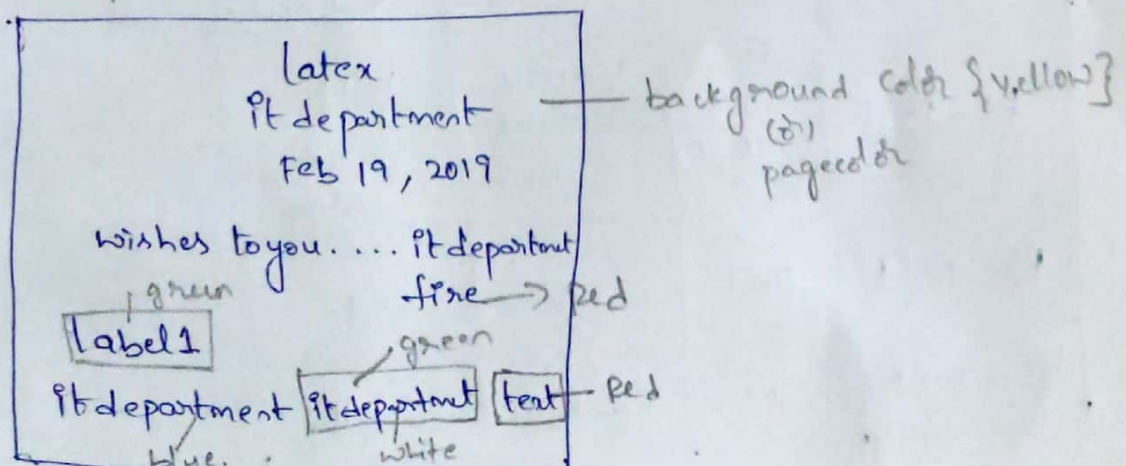 latex
it department
background color {yellow}
(or)
pagecolor
Feb 19, 2019
wishes to you.... it department
green
fire → Red
label1
green
it department it department text Red
blue.
white